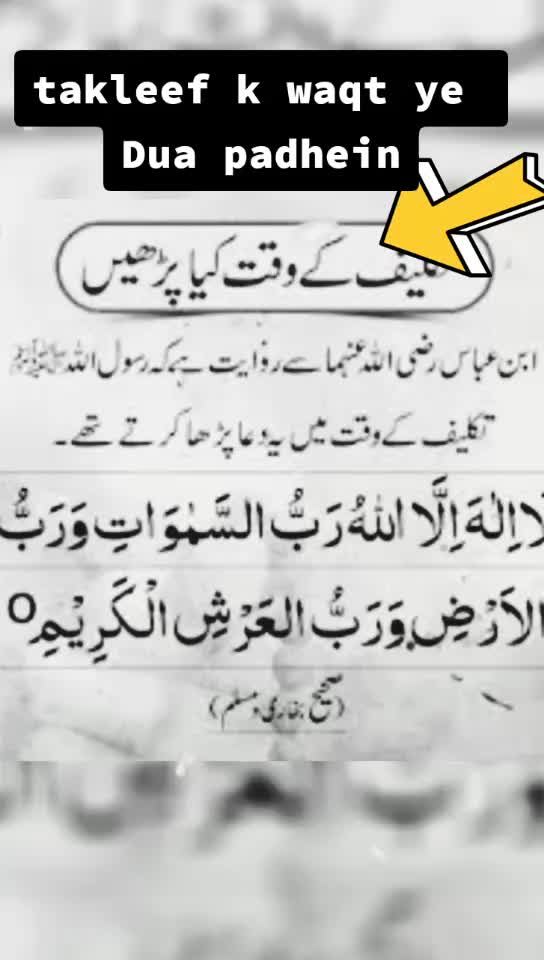 takleef k waqt ye
Dua padhein
تکلیف کے وقت کیا پڑھیں
ابن عباس رضی اللہ عنہما سے روایت ہے کہ رسول اللہ ﷺ
تکلیف کے وقت میں یہ دعا پڑھا کرتے تھے۔
لَا اِلٰهَ اِلَّا اللهُ رَبُّ السَّمٰوَاتِ وَرَبُّ
الْاَرْضِ وَرَبُّ الْعَرْشِ الْكَرِيْمِ○
(صحیح بخاری و مسلم)